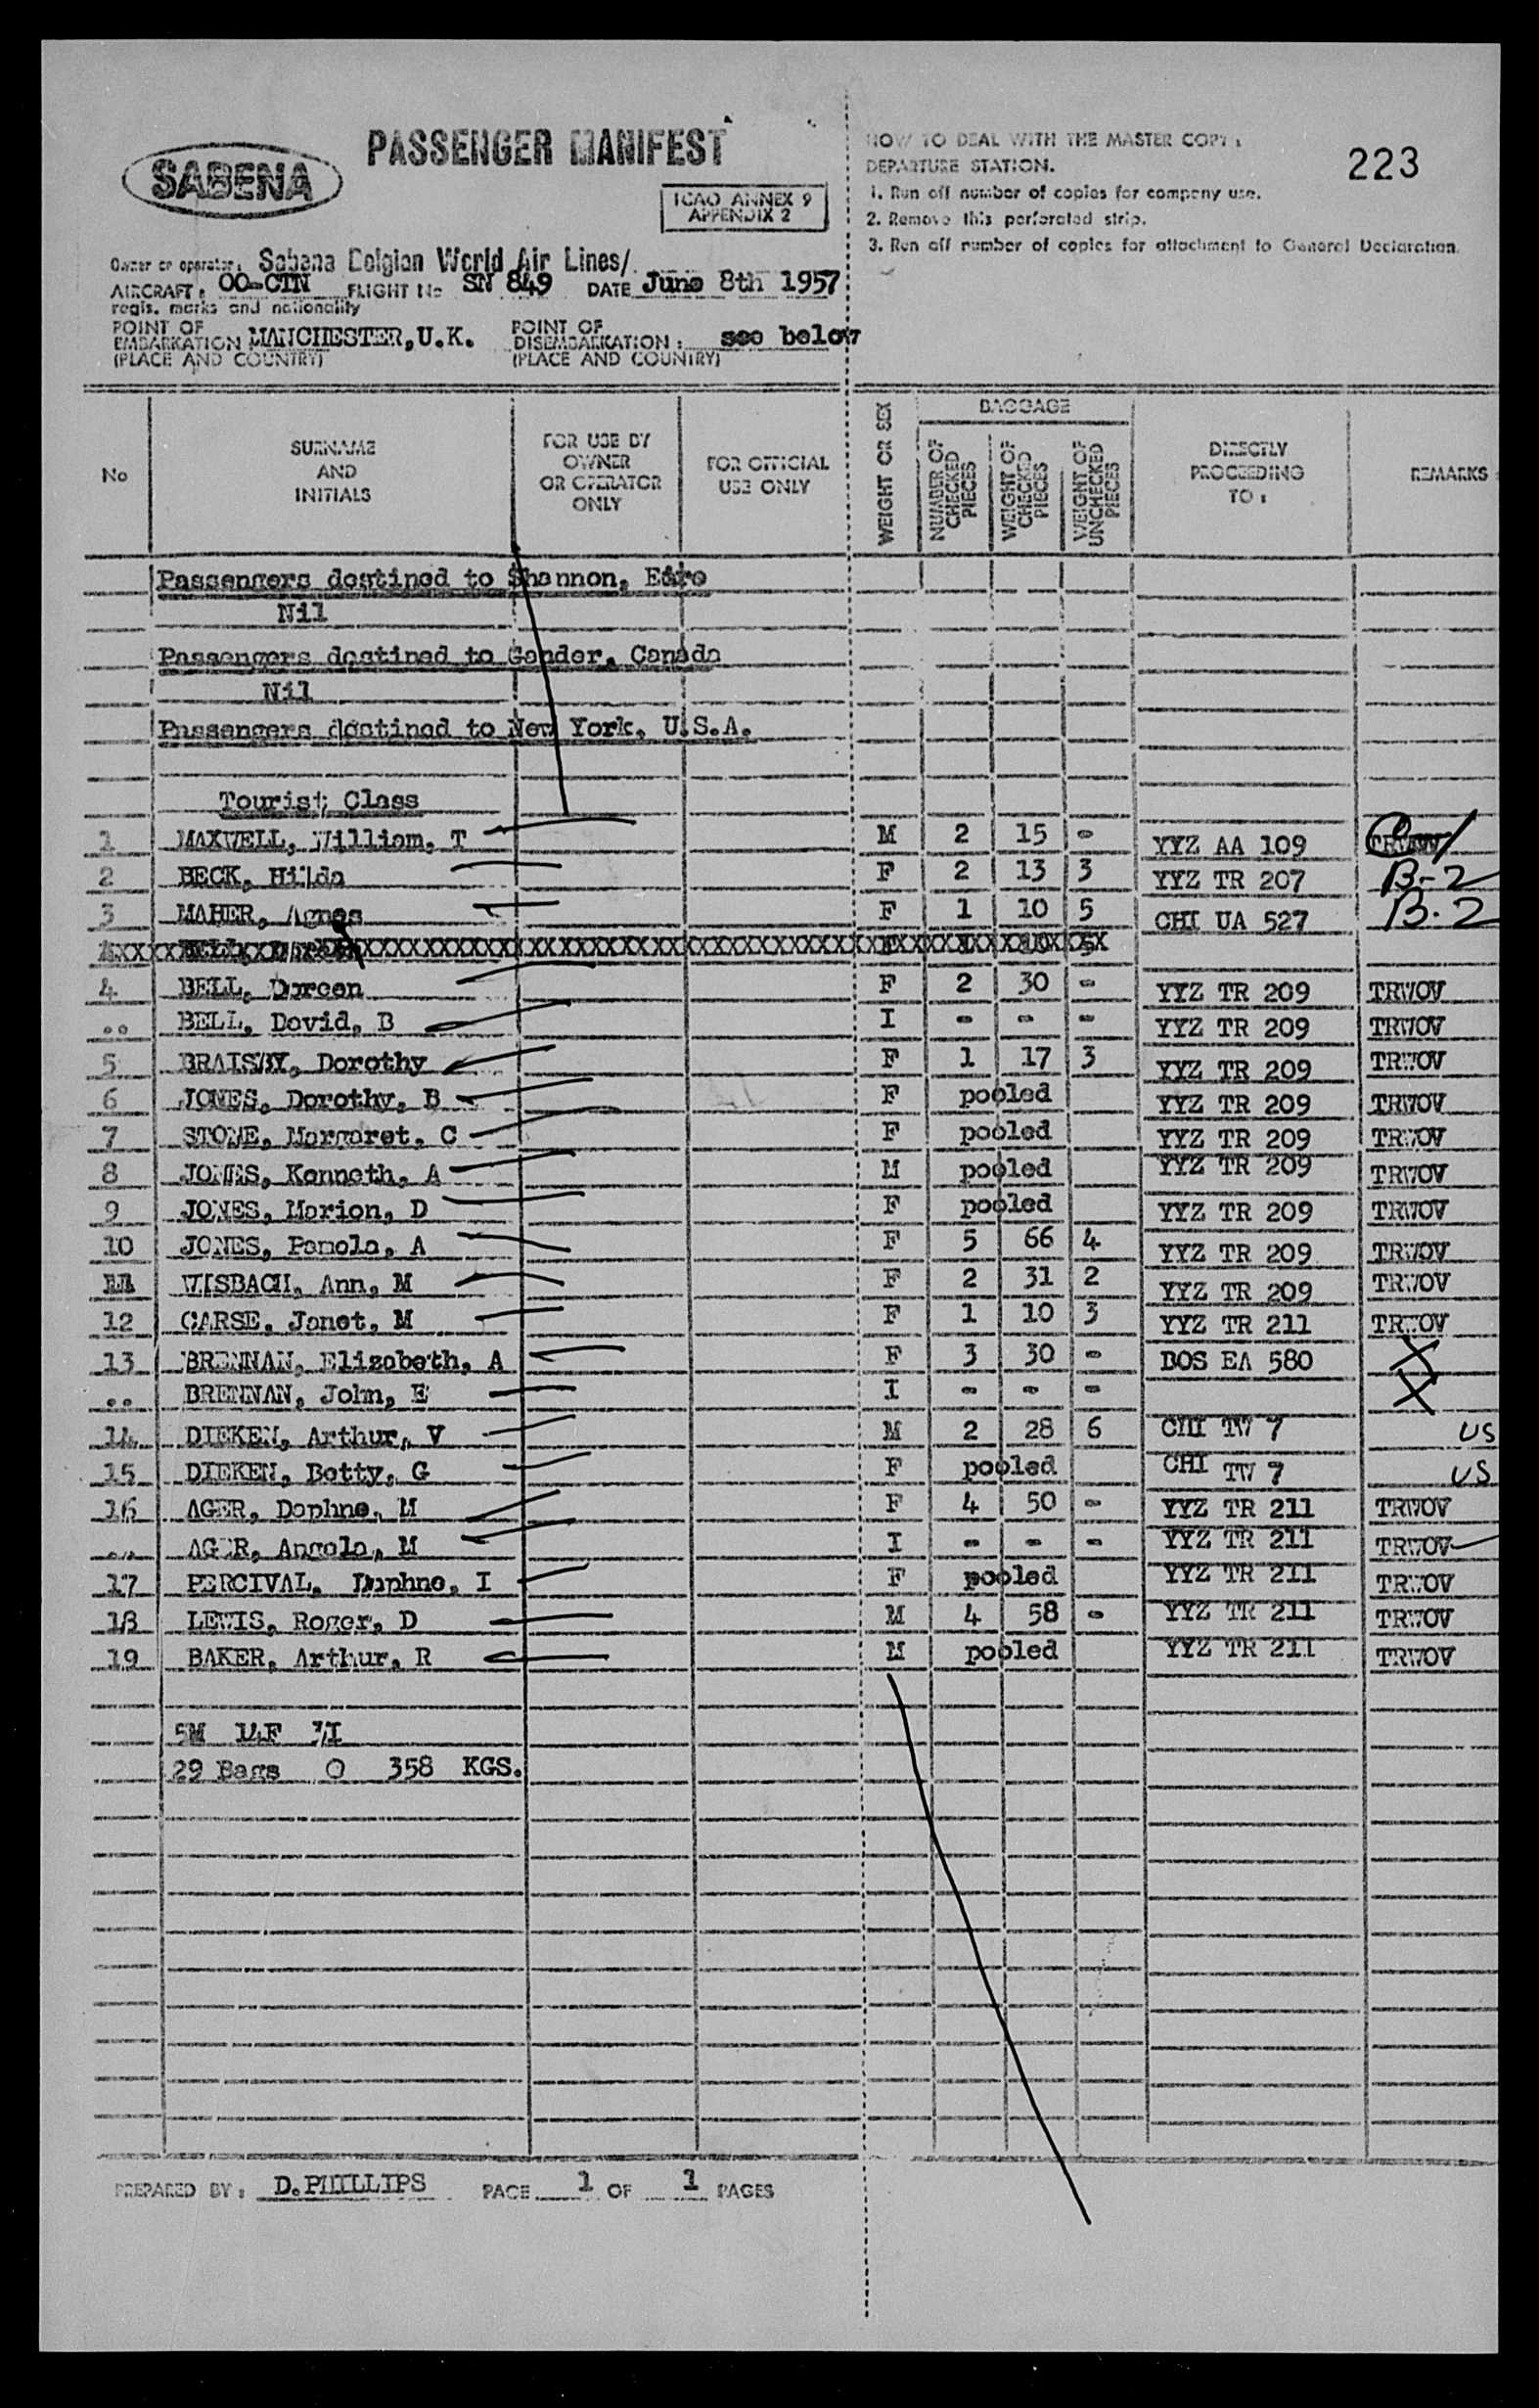 PASSENGER MANIFEST
SABENA
ICAO ANNEX 9
APPENDIX 2
HOW TO DEAL WITH THE MASTER COPY :
DEPARTURE STATION.
1. Run off number of copies for company use.
2. Remove this perforated strip.
3. Run off number of copies for attachment to General Declaration.
223
Owner or operator: Sabena Belgian World Air Lines/
AIRCRAFT: OO-CTN FLIGHT No SN 849 DATE June 8th 1957
regis. marks and nationality
POINT OF EMBARKATION MANCHESTER, U.K. POINT OF DISEMBARKATION: see below
(PLACE AND COUNTRY) (PLACE AND COUNTRY)
No SURNAME AND INITIALS FOR USE BY OWNER OR OPERATOR ONLY FOR OFFICIAL USE ONLY WEIGHT OR SEX BAGGAGE NUMBER OF CHECKED PIECES WEIGHT OF CHECKED PIECES WEIGHT OF UNCHECKED PIECES DIRECTLY PROCEEDING TO : REMARKS :
Passengers destined to Shannon, Eire
Nil
Passengers destined to Gander, Canada
Nil
Passengers destined to New York, U.S.A.
Tourist Class
1 MAXWELL, William, T M 2 15 - YYZ AA 109
2 BECK, Hilda F 2 13 3 YYZ TR 207 B-2
3 MAHER, Agnes F 1 10 5 CHI UA 527 B-2
4 BELL, Doreen F 2 30 - YYZ TR 209 TRWOV
.. BELL, David, B I - - - YYZ TR 209 TRWOV
5 BRAISBY, Dorothy F 1 17 3 YYZ TR 209 TRWOV
6 JONES, Dorothy, B F pooled YYZ TR 209 TRWOV
7 STONE, Margaret, C F pooled YYZ TR 209 TRWOV
8 JONES, Kenneth, A M pooled YYZ TR 209 TRWOV
9 JONES, Marion, D F pooled YYZ TR 209 TRWOV
10 JONES, Pamela, A F 5 66 4 YYZ TR 209 TRWOV
11 WISBACH, Ann, M F 2 31 2 YYZ TR 209 TRWOV
12 CARSE, Janet, M F 1 10 3 YYZ TR 211 TRWOV
13 BRENNAN, Elizabeth, A F 3 30 - BOS EA 580 X
.. BRENNAN, John, E I - - - X
14 DIEKEN, Arthur, V M 2 28 6 CHI TW 7 US
15 DIEKEN, Betty, G F pooled CHI TW 7 US
16 AGER, Daphne, M F 4 50 - YYZ TR 211 TRWOV
.. AGER, Angela, M I - - - YYZ TR 211 TRWOV
17 PERCIVAL, Daphne, I F pooled YYZ TR 211 TRWOV
18 LEWIS, Roger, D M 4 58 - YYZ TR 211 TRWOV
19 BAKER, Arthur, R M pooled YYZ TR 211 TRWOV
5M 14F 3I
29 Bags O 358 KGS.
PREPARED BY: D.PHILLIPS PAGE 1 OF 1 PAGES